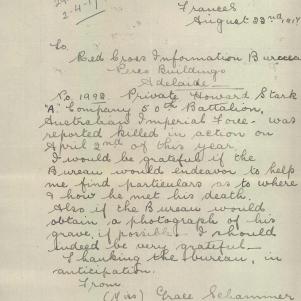 2-4-17
Frances
August 22nd, 1917
To
Red Cross Information Bureau
Peres Buildings
Adelaide
No 1992 Private Howard Stark
"A" Company 50th Battalion,
Australian Imperial Force - was
reported killed in action on
April 2nd of this year.
I would be grateful if the
Bureau would endeavor to help
me find particulars as to where
& how he met his death.
Also if the Bureau would
obtain a photograph of his
grave, if possible - I should
indeed be very grateful -
Thanking the bureau, in
anticipation.
From
(Miss) Grace Schammer